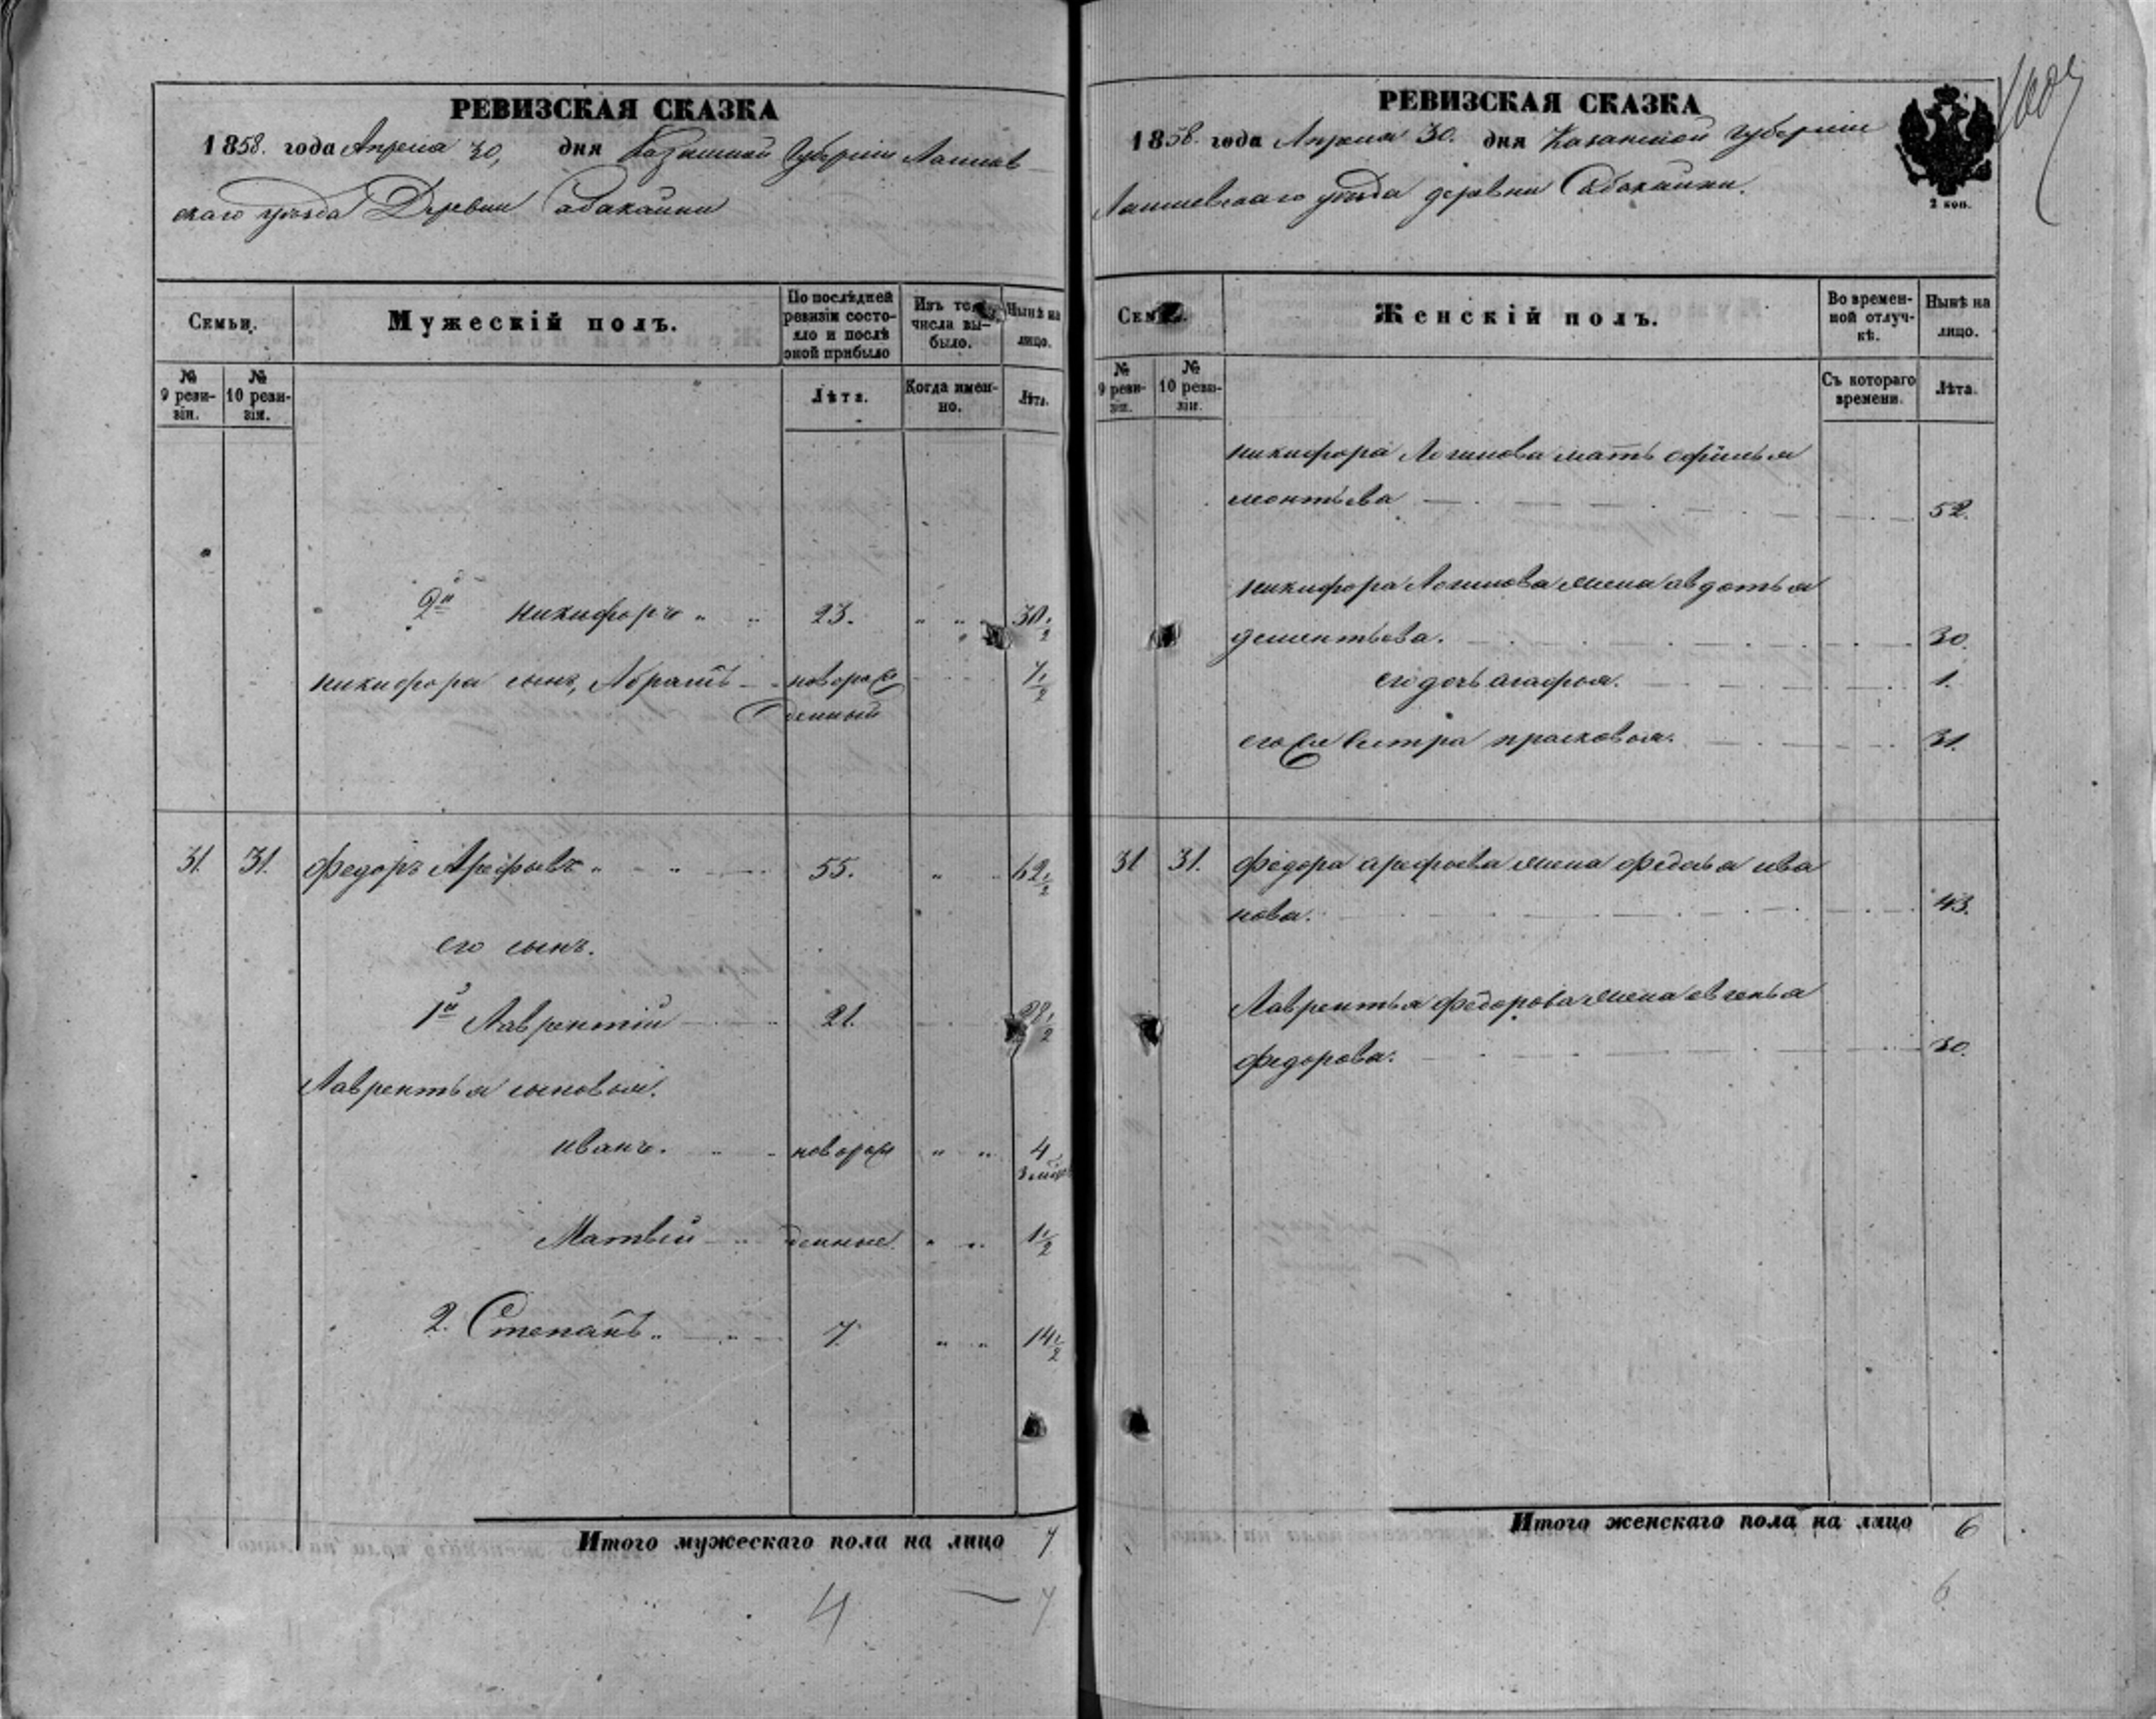 РЕВИЗСКАЯ СКАЗКА
1858. года Апреля 30, дня Казанской Губернии Лаишев
скаго уѣзда Деревни Сабакайки
Семьи.
Мужескій полъ.
По послѣдней ревизіи состояло и послѣ оной прибыло
Изъ того числа выбыло.
Нынѣ на лицо.
№ 9 ревизіи.
№ 10 ревизіи.
Лѣта.
Когда именно.
Лѣта.
2й никифоръ 23. 30 1/2
никифора сынъ, Абрамъ новорож 1/2
денный
31. 31. Федоръ Арефьевъ 55. 62 1/2
его сынъ.
1й Лаврентій 21. 28 1/2
Лаврентья сыновья.
иванъ. новорож 4
Матвѣй денные. 1 1/2
2. Степанъ 7. 14 1/2
Итого мужескаго пола на лицо 7
4 — 7
РЕВИЗСКАЯ СКАЗКА
1858. года Апреля 30. дня Казанской Губерніи
Лаишевскаго уѣзда деревни Сабакайки.
2 коп.
Семьи.
Женскій полъ.
Во временной отлучкѣ.
Нынѣ на лицо.
№ 9 ревизіи.
№ 10 ревизіи.
Съ котораго времени.
Лѣта.
никифора Логинова мать
52.
никифора Логинова жена авдотья
дементьева. 30.
его дочь агафья. 1.
его же сестра прасковья. 31.
31 31. федора арефьева жена федосья ива
нова. 43.
Лаврентья федорова жена евгенья
федорова. 30.
Итого женскаго пола на лицо 6
6